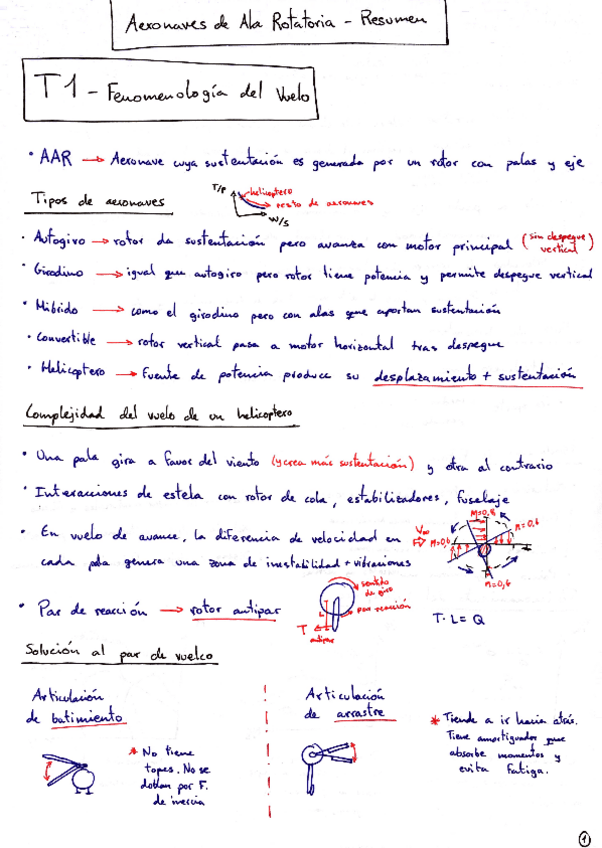 Aeronaves de Ala Rotatoria - Resumen
T1 - Fenomenología del Vuelo
· AAR → Aeronave cuya sustentación es generada por un rotor con palas y eje
Tipos de aeronaves
T/P
helicoptero
resto de aeronaves
W/S
· Autogiro → rotor da sustentación pero avanza con motor principal (sin despegue vertical)
· Girodino → igual que autogiro pero rotor tiene potencia y permite despegue vertical
· Hibrido → como el girodino pero con alas que aportan sustentación
· Convertible → rotor vertical pasa a motor horizontal tras despegue
· Helicoptero → Fuente de potencia produce su desplazamiento + sustentación
Complejidad del vuelo de un helicoptero
· Una pala gira a favor del viento (y crea más sustentación) y otra al contrario
· Interacciones de estela con rotor de cola, estabilizadores, fuselaje
· En vuelo de avance, la diferencia de velocidad en
cada pala genera una zona de inestabilidad + vibraciones
V∞
M=0,8
M=0,6
M=0,6
M=0,6
· Par de reacción → rotor antipar
sentido de giro
par reacción
L
T
antipar
T · L = Q
Solución al par de vuelco
Articulación
de batimiento
* No tiene
topes. No se
doblan por F.
de inercia
Articulación
de arrastre
* Tiende a ir hacia atrás.
Tiene amortiguador que
absorbe momentos y
evita fatiga.
1